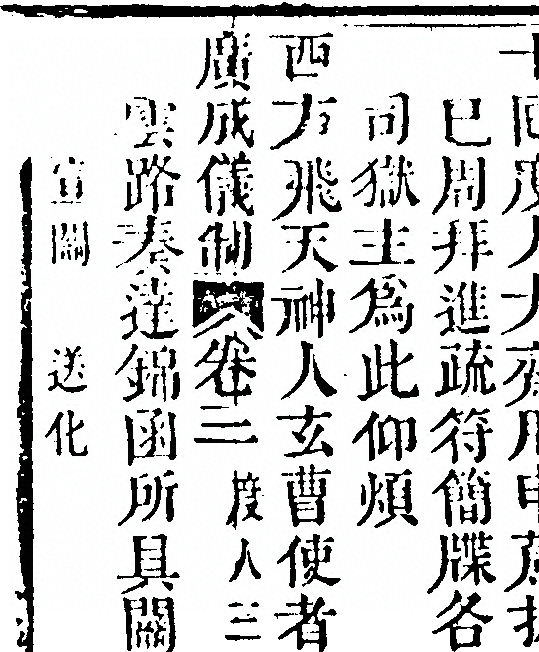 回度人大齋用申薦
已周拜進疏符簡牒各
司獄主爲此仰煩
西方飛天神人玄曹使者
廣成儀制 卷三 度人三
雲路奏達錦函所具關
宣關 送化